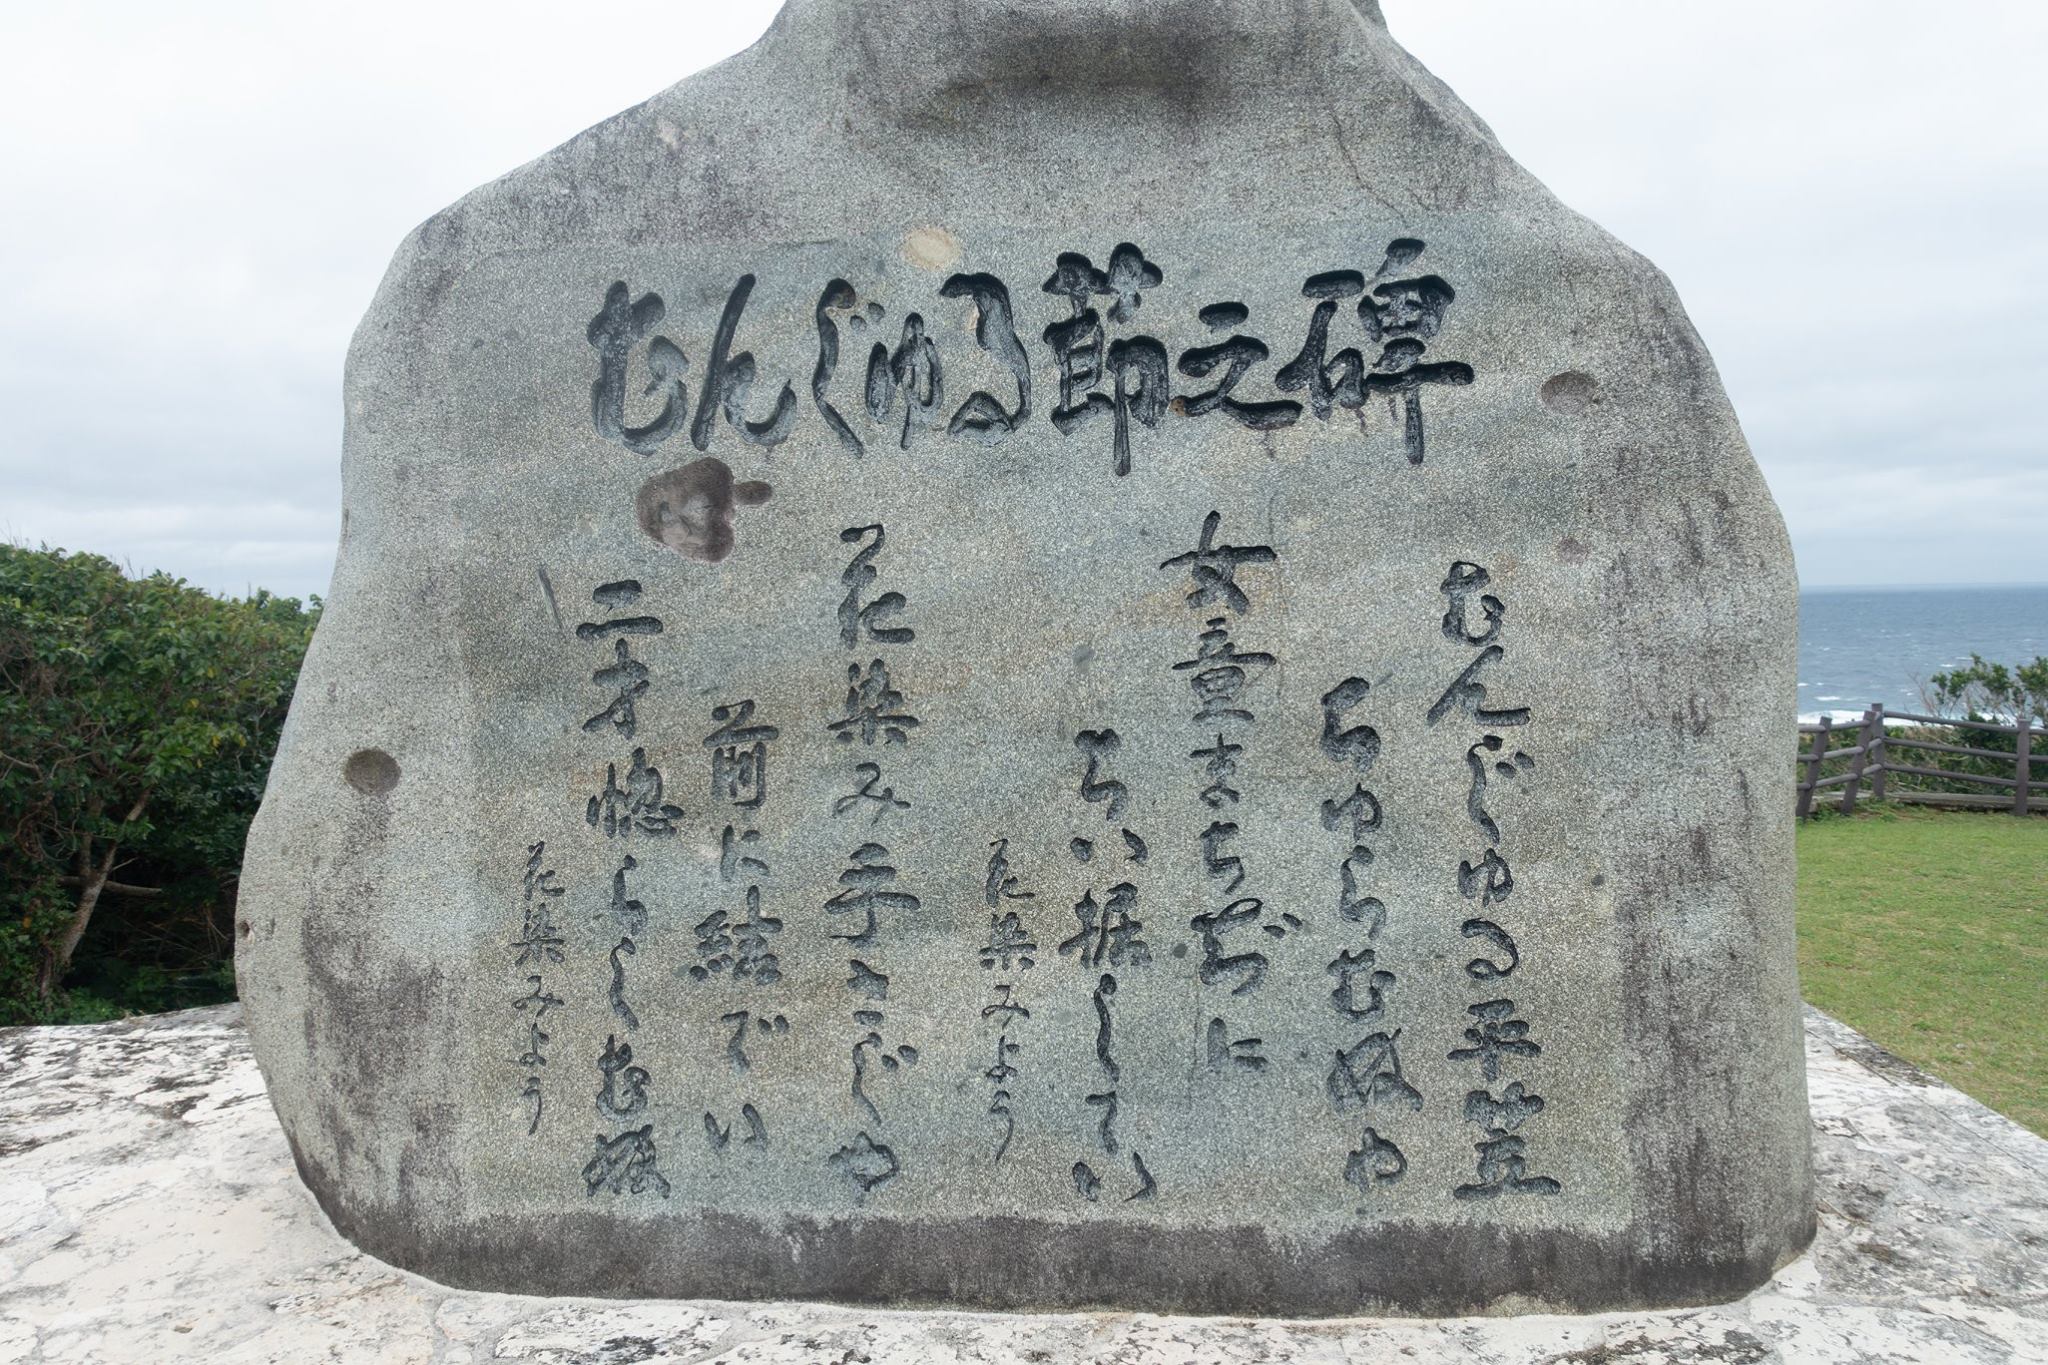 むんじゅる節之碑
むんじゅる平笠
ちゅらむぬや
女童まちぢに
ちい据してい
花染みよう
花染み手さじや
前に結でい
二才惚らしむぬ
花染みよう